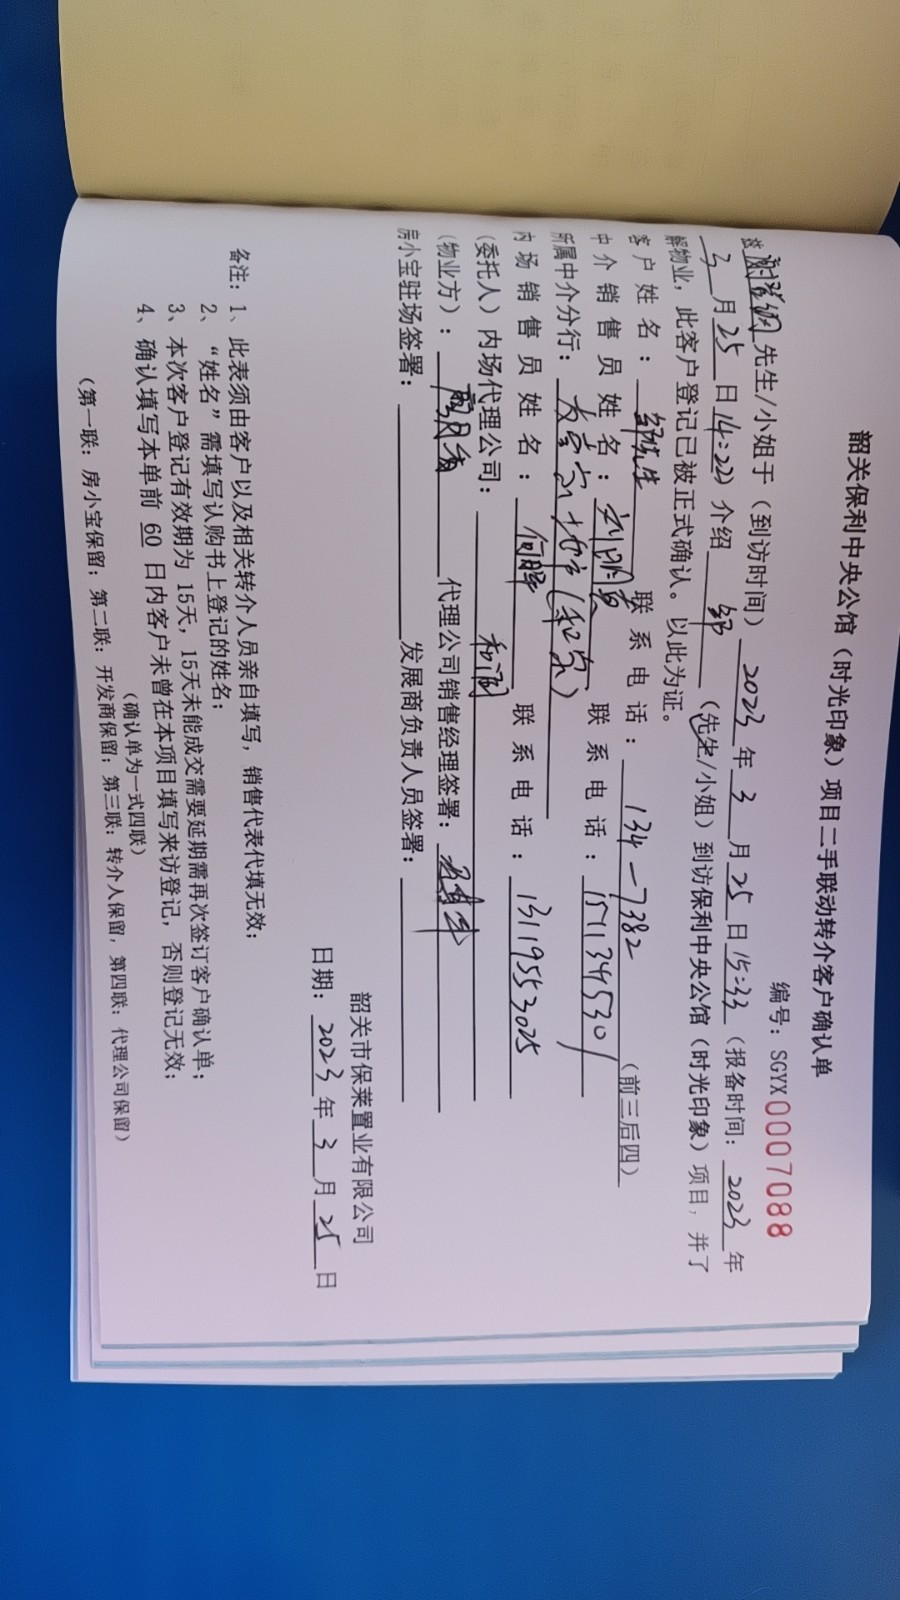 韶关保利中央公馆（时光印象）项目二手联动转介客户确认单
编号：SGYX0007088
兹 先生/小姐于（到访时间）2023年3月25日15:33（报备时间：2023年
3月25日14:22）介绍 邹 （先生/小姐）到访保利中央公馆（时光印象）项目，并了
解物业，此客户登记已被正式确认。以此为证。
客户姓名：邹先生 联系电话：134—7382（前三后四）
中介销售员姓名：刘 联系电话：15113453301
所属中介分行：
内场销售员姓名：何 联系电话：13119553025
（委托人）内场代理公司：和润
（物业方）： 代理公司销售经理签署：
房小宝驻场签署： 发展商负责人员签署：
韶关市保莱置业有限公司
日期：2023年3月25日
备注：1、此表须由客户以及相关转介人员亲自填写，销售代表代填无效；
2、“姓名”需填写认购书上登记的姓名；
3、本次客户登记有效期为15天，15天未能成交需要延期需再次签订客户确认单；
4、确认填写本单前 60 日内客户未曾在本项目填写来访登记，否则登记无效；
（确认单为一式四联）
（第一联：房小宝保留；第二联：开发商保留；第三联：转介人保留，第四联：代理公司保留）